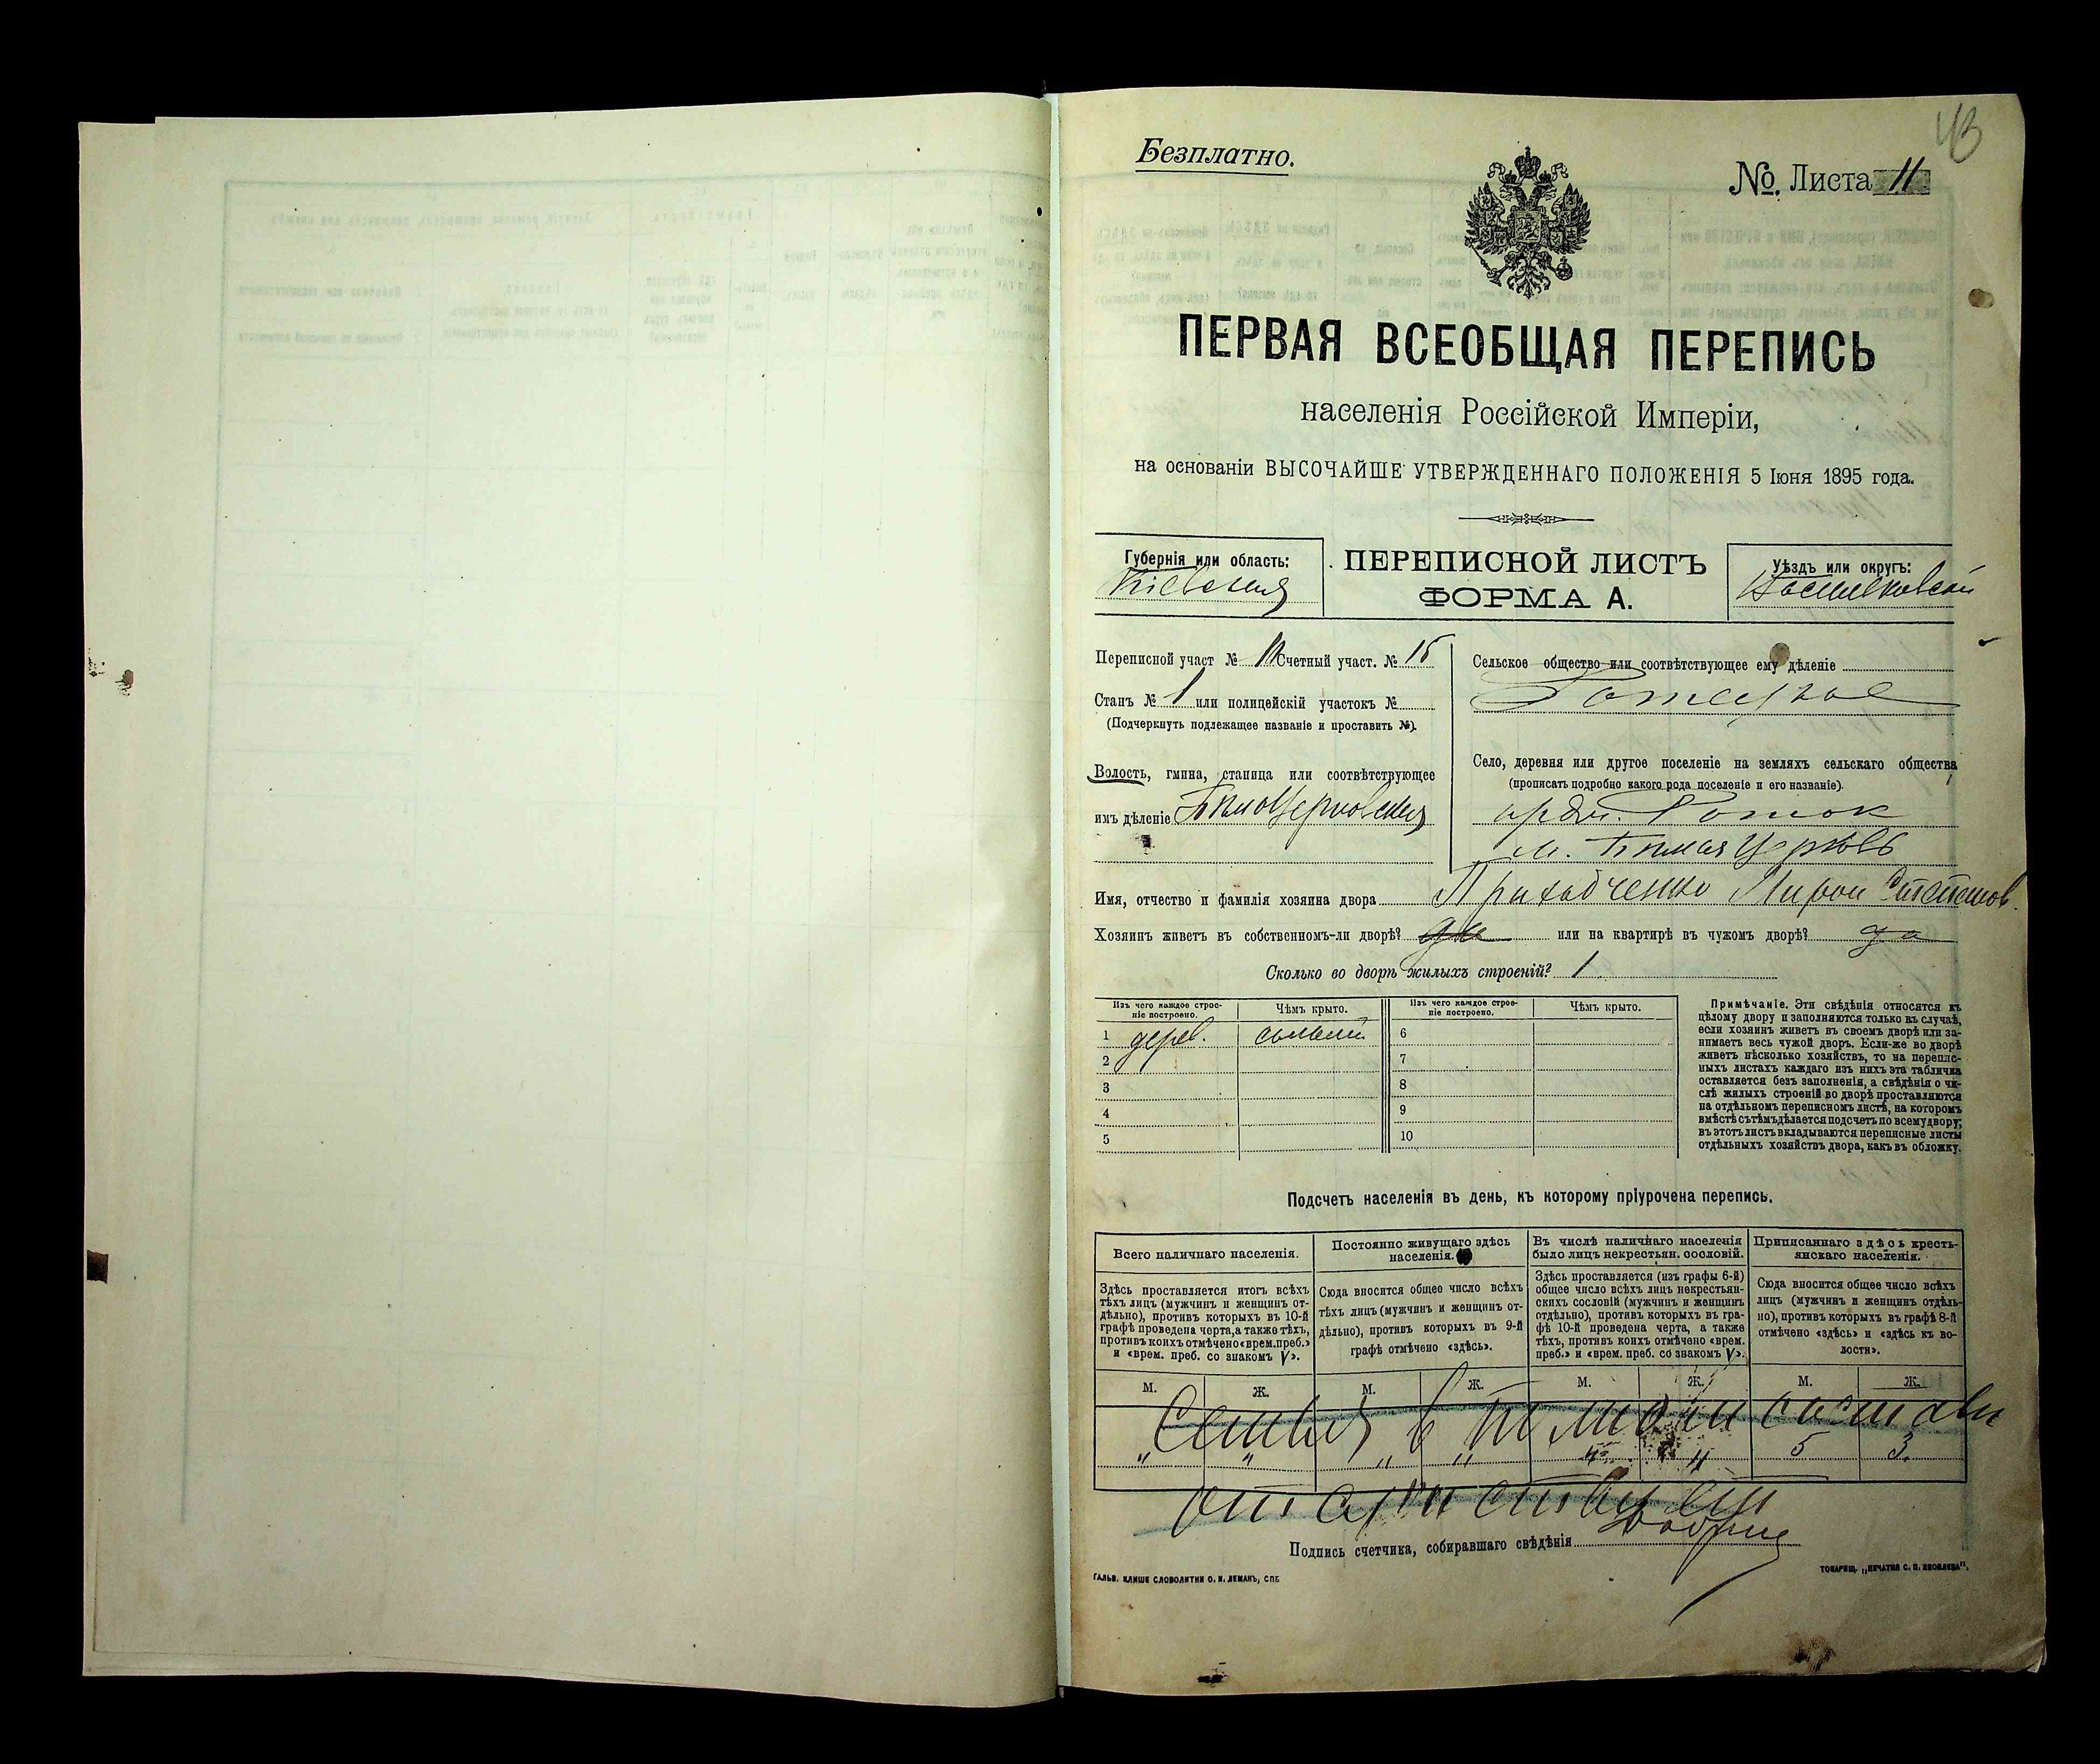 43
Безплатно.
№ Листа 11
ПЕРВАЯ ВСЕОБЩАЯ ПЕРЕПИСЬ
населенія Россійской Имперіи,
на основаніи ВЫСОЧАЙШЕ УТВЕРЖДЕННАГО ПОЛОЖЕНІЯ 5 Іюня 1895 года.
Губернія или область:
Кіевская
ПЕРЕПИСНОЙ ЛИСТЪ
ФОРМА А.
Уѣздъ или округъ:
Васильковскій
Переписной участ № Счетный участ. № 15
Станъ № 1 или полицейскій участокъ №
(Подчеркнуть подлежащее названіе и проставить №).
Волость, гмина, станица или соотвѣтствующее
имъ дѣленіе Бѣлоцерковская
Сельское общество или соотвѣтствующее ему дѣленіе
Село, деревня или другое поселеніе на земляхъ сельскаго общества
(прописать подробно какого рода поселеніе и его названіе).
предм. Роток
м. Бѣлая Церковь
Имя, отчество и фамилія хозяина двора Приходченко Мирон Степанов.
Хозяинъ живетъ въ собственномъ-ли дворѣ? да или на квартирѣ въ чужомъ дворѣ? да
Сколько во дворѣ жилыхъ строеній? 1
Изъ чего каждое строе-
ніе построено.
Чѣмъ крыто.
Изъ чего каждое строе-
ніе построено.
Чѣмъ крыто.
1 дерев. соломой
2
3
4
5
6
7
8
9
10
Примѣчаніе. Эти свѣдѣнія относятся къ
цѣлому двору и заполняются только въ случаѣ,
если хозяинъ живетъ въ своемъ дворѣ или за-
нимаетъ весь чужой дворъ. Если-же во дворѣ
живетъ нѣсколько хозяйствъ, то на перепис-
ныхъ листахъ каждаго изъ нихъ эта табличка
оставляется безъ заполненія, а свѣдѣнія о чи-
слѣ жилыхъ строеній во дворѣ проставляются
на отдѣльномъ переписномъ листѣ, на которомъ
вмѣстѣ съ тѣмъ дѣлается подсчетъ по всему двору;
въ этотъ листъ вкладываются переписные листы
отдѣльныхъ хозяйствъ двора, какъ въ обложку.
Подсчетъ населенія въ день, къ которому пріурочена перепись.
Всего наличнаго населенія.
Постоянно живущаго здѣсь
населенія.
Въ числѣ наличнаго населенія
было лицъ некрестьян. сословій.
Приписаннаго здѣсь кресть-
янскаго населенія.
Здѣсь проставляется итогъ всѣхъ
тѣхъ лицъ (мужчинъ и женщинъ от-
дѣльно), противъ которыхъ въ 10-й
графѣ проведена черта, а также тѣхъ,
противъ коихъ отмѣчено «врем. преб.»
и «врем. преб. со знакомъ V».
Сюда вносится общее число всѣхъ
тѣхъ лицъ (мужчинъ и женщинъ от-
дѣльно), противъ которыхъ въ 9-й
графѣ отмѣчено «здѣсь».
Здѣсь проставляется (изъ графы 6-й)
общее число всѣхъ лицъ некрестьян-
скихъ сословій (мужчинъ и женщинъ
отдѣльно), противъ которыхъ въ гра-
фѣ 10-й проведена черта, а также
тѣхъ, противъ коихъ отмѣчено «врем.
преб.» и «врем. преб. со знакомъ V».
Сюда вносится общее число всѣхъ
лицъ (мужчинъ и женщинъ отдѣль-
но), противъ которыхъ въ графѣ 8-й
отмѣчено «здѣсь» и «здѣсь къ во-
лости».
М. Ж. М. Ж. М. Ж. М. Ж.
Семья в полном составе
" " " " " " 5 3.
отсутствует
Подпись счетчика, собиравшаго свѣдѣнія
ГАЛЬВ. КЛИШЕ СЛОВОЛИТНИ О. И. ЛЕМАНЪ, СПБ
ТОВАРИЩ. „ПЕЧАТНЯ С. П. ЯКОВЛЕВА“,